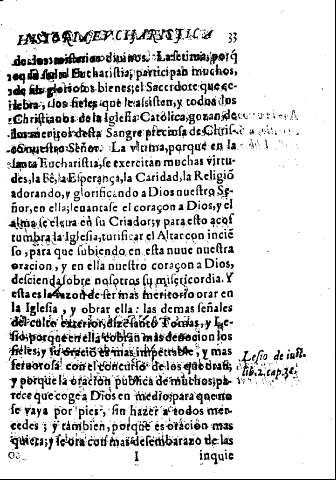 HISTORIA EVCHARISTICA 33
de los misterios diuinos. La setima, porq̃
en la Eucharistia, participan muchos,
de sus gloriosos bienes; el Sacerdote que ce-
lebra, los fieles que le assisten, y todos los
Christianos de la Iglesia Catolica, gozan de
los meritos desta Sangre preciosa de Chris-
to nuestro Señor. La vltima, porque en la
santa Eucharistia, se exercitan muchas virtu-
des, la Fè, la Esperança, la Caridad, la Religiõ
adorando, y glorificando a Dios nuestro Se-
ñor, en ella; leuantase el coraçon a Dios, y el
alma se eleua en su Criador; y para esto acos
tumbra la Iglesia, turificar el Altar con inciẽ
so, para que subiendo en esta nuue nuestra
oracion, y en ella nuestro coraçon a Dios,
descienda sobre nosotros su misericordia. Y
esta es la razon de ser mas meritorio orar en
la Iglesia, y obrar ella: las demas señales
del culto exterior, dize santo Tomas, y Le-
sio, porque en ella cobran mas deuocion los
fieles, y su oracio es mas impetrable, y mas
feruorosa con el concurso de los que oran,
y porque la oracion publica de muchos, pa-
rece que coge a Dios en medio, para que no
se vaya por pies, sin hazer a todos mer-
cedes; y tambien, porque es oracion mas
quieta; y se ora con mas desembarazo de las
Lesio de iust.
lib. 2. cap. 3
I inquie